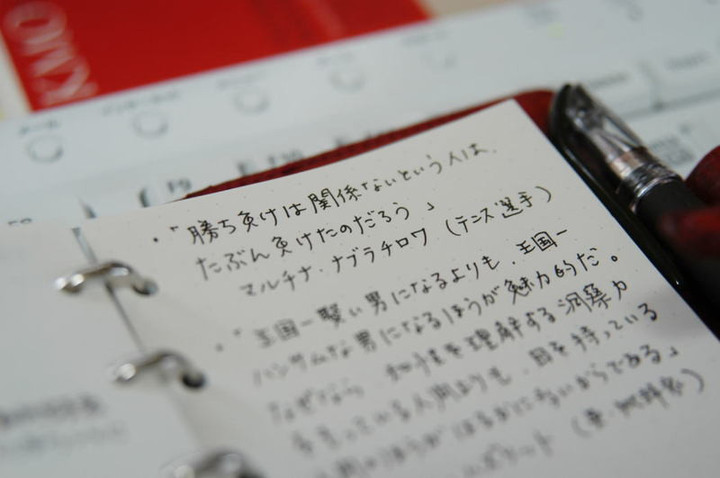 KMO
F9
F10
・「勝ち負けは関係ないという人は、
たぶん負けたのだろう」
マルチナ・ナブラチロワ（テニス選手）
・「王国一賢い男になるよりも、王国一
ハンサムな男になるほうが魅力的だ。
なぜなら、知性を理解する洞察力
を持っている人間よりも、目を持っている
人間のほうがはるかに多いからである」